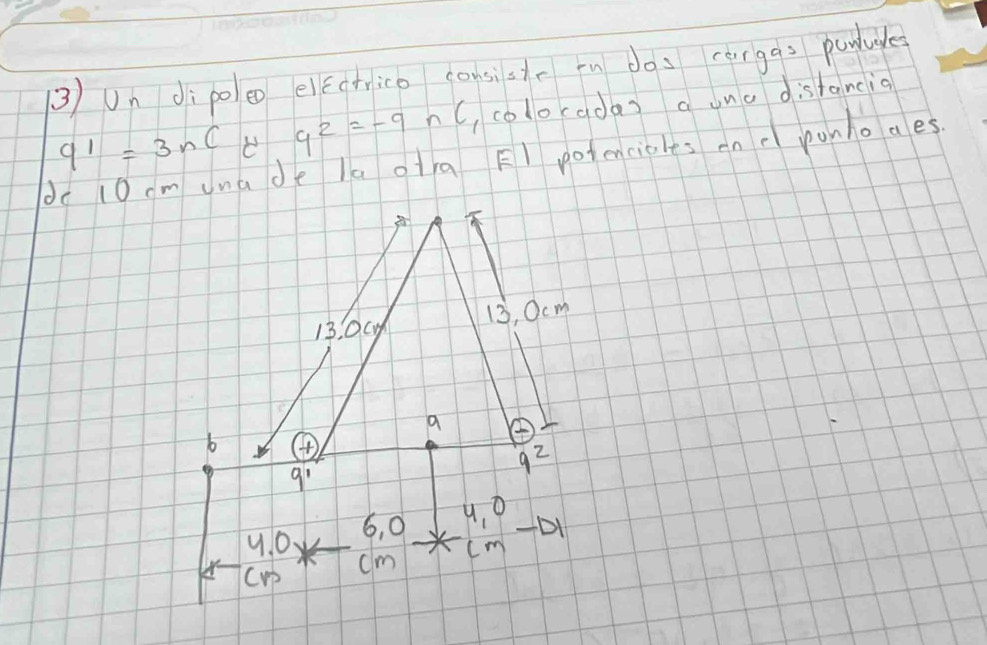 3) Un dipolo eléctrico consiste en dos cargas puntuales
q1 = 3nC y q2 = -9 nC, colocadas a una distancia
de 10 cm una de la otra El potenciales en el punto a es.
13.0cm
13,0cm
b
(+)
a
(-)
q1
q2
4.0 cm
6,0 cm
4,0 cm